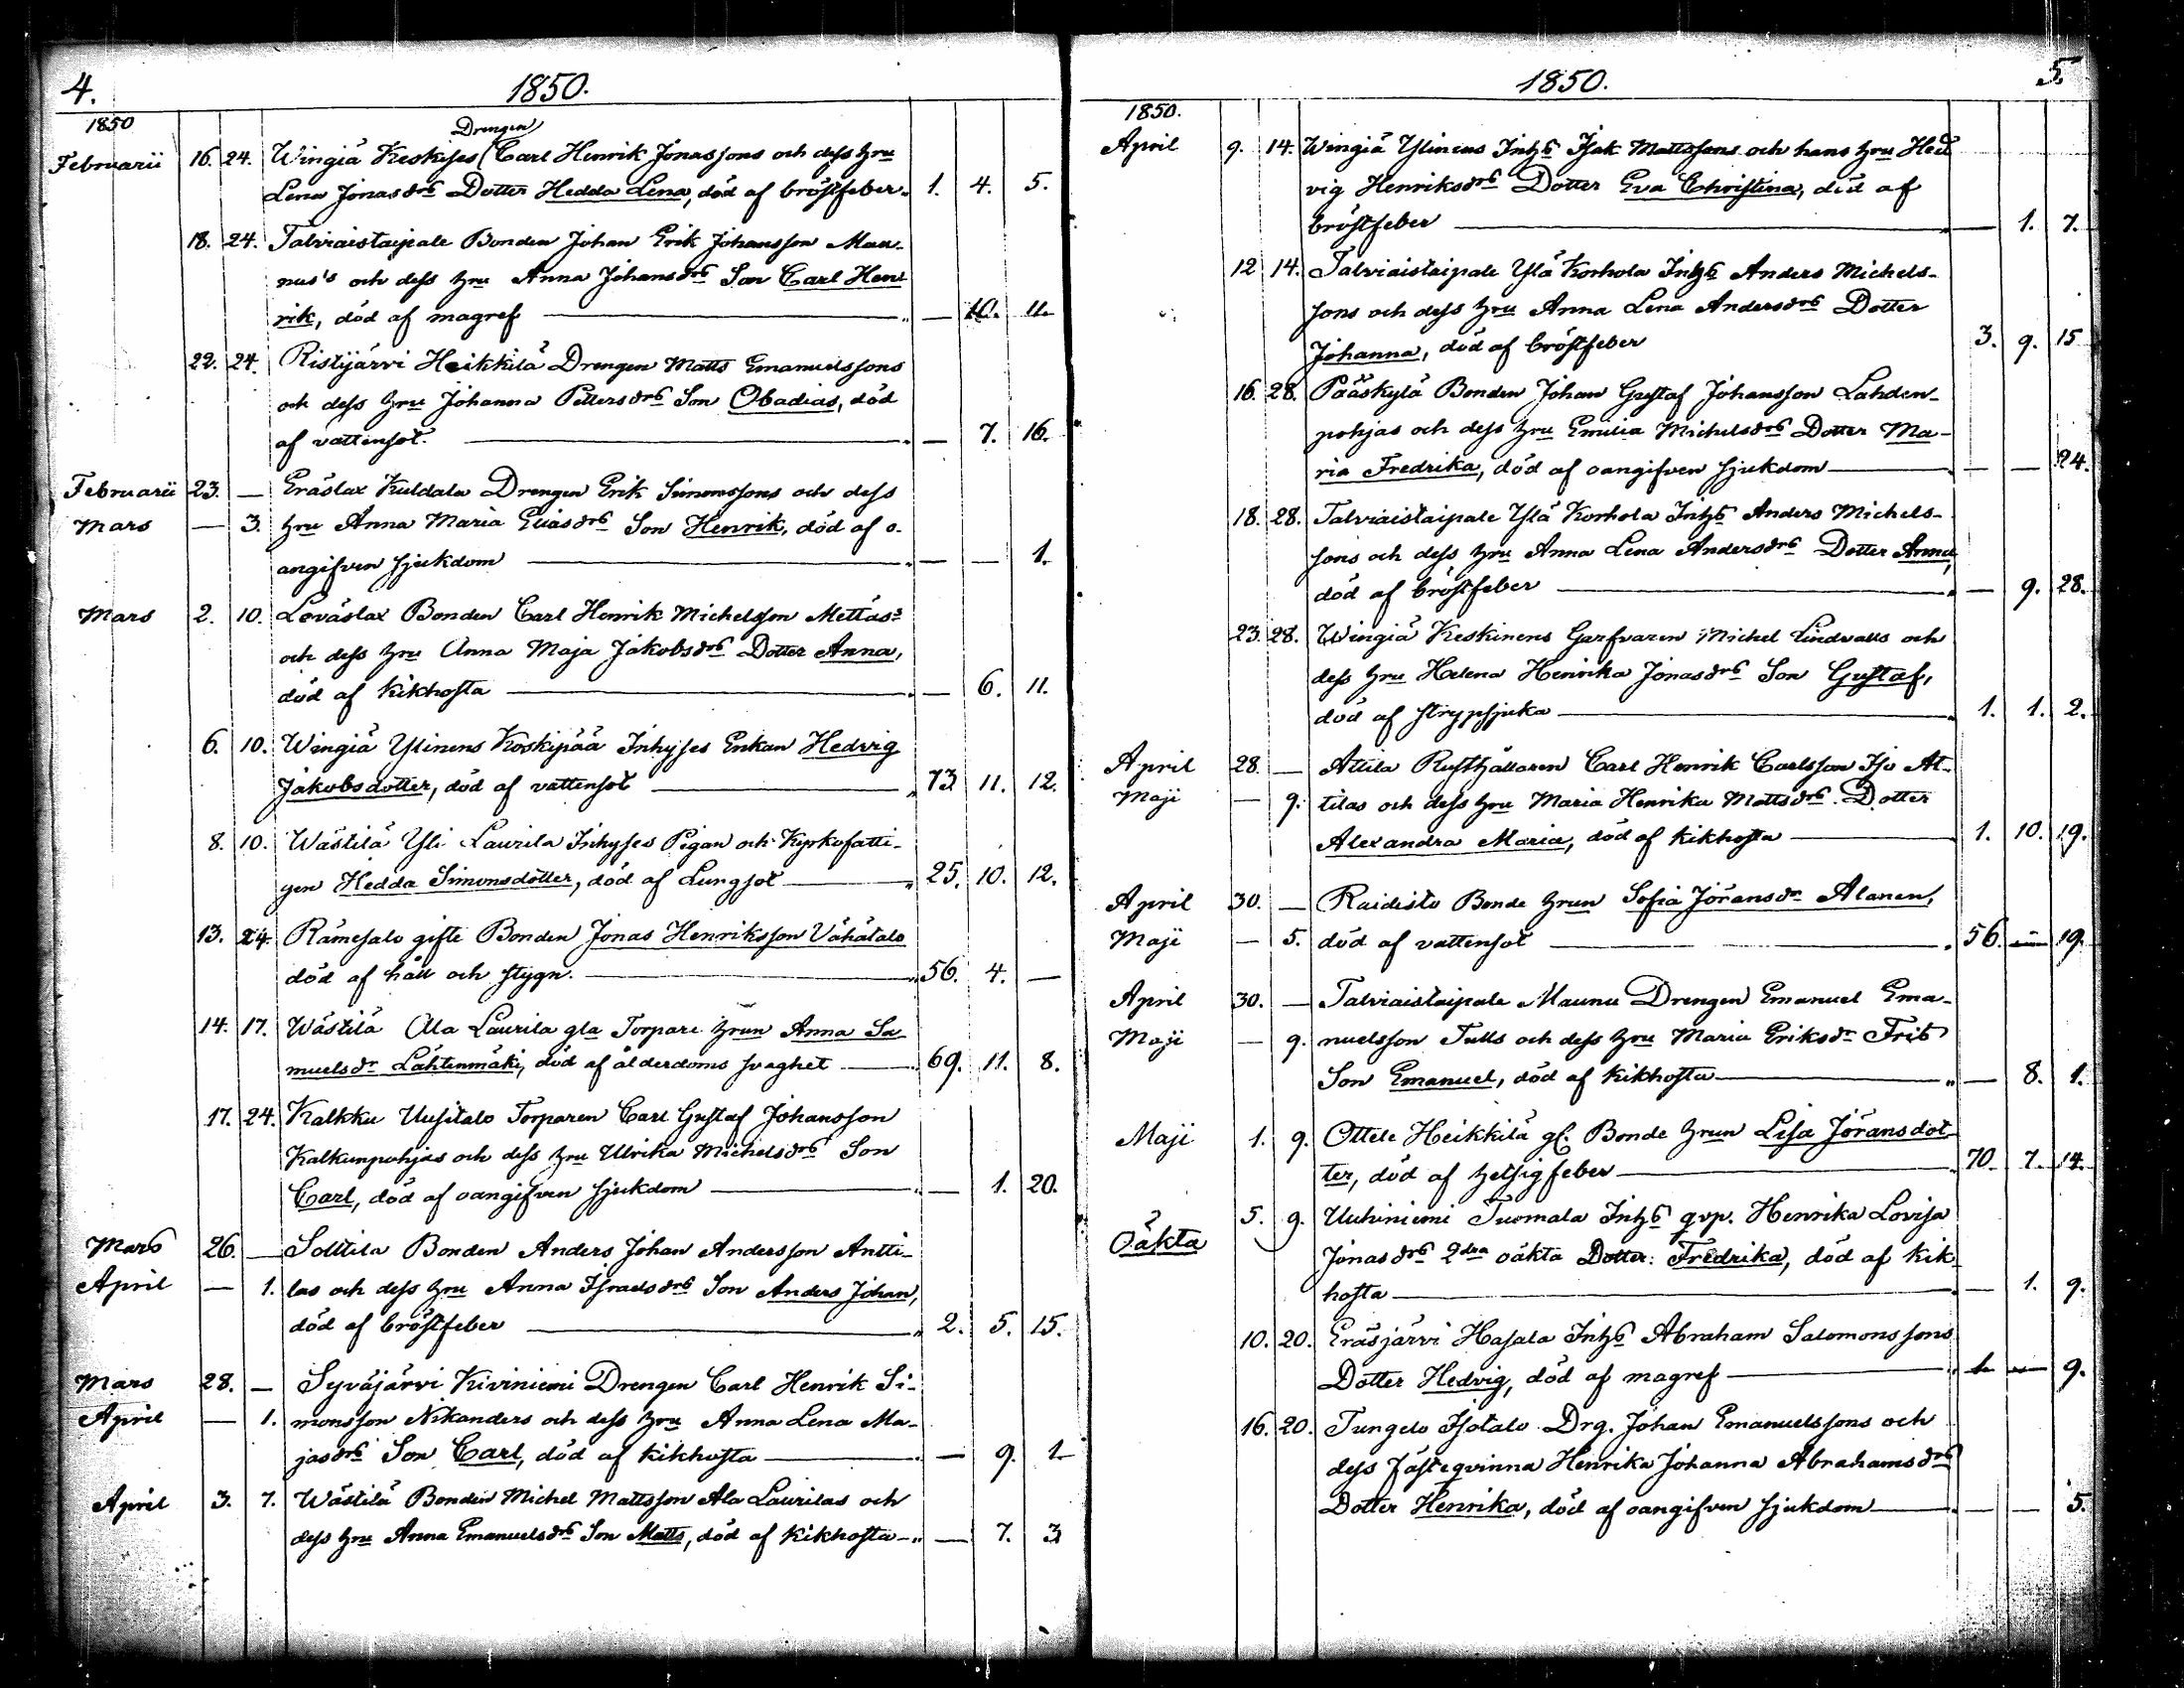 4.
1850.
1850
Drengen
Februarii 16. 24. Wingiä Keskises Carl Henrik Jonassons och dess hru
Lena Jonasdrs Dotter Hedda Lena, död af bröstfeber 1. 4. 5.
18. 24. Talviaistaipale Bonden Johan Erik Johansson Mau-
nus's och dess hru Anna Johansdrs Son Carl Hen
rik, död af magref — 10. 11.
22. 24. Ristijärvi Heikkilä Drengen Matts Emanuelssons
och dess hru Johanna Pettersdrs Son Obadias, död
af vattensot. — 7. 16.
Februarii 23. — Eräslax Kuldala Drengen Erik Simonssons och dess
Mars — 3. hru Anna Maria Eliasdrs Son Henrik, död af o-
angifven sjukdom — — 1.
Mars 2. 10. Loväslax Bonden Carl Henrik Michelsson Mettäs
och dess hru Anna Maja Jakobsdrs Dotter Anna,
död af kikhosta — 6. 11.
6. 10. Wingiä Ylinens Koskipää Inhyses Enkan Hedvig
Jakobsdotter, död af vattensot 73 11. 12.
8. 10. Wästilä Yli Laurila Inhyses Pigan och Kyrkofatti-
gen Hedda Simonsdotter, död af Lungsot 25. 10. 12.
13. 24. Rämesalo gifte Bonden Jonas Henriksson Vähätalo
död af håll och stygn. 56. 4. —
14. 17. Wästilä Ala Laurila gla Torpare hrun Anna Sa
muelsdr Lahtenmäki, död af ålderdoms svaghet 69. 11. 8.
17. 24. Kalkku Uusitalo Torparen Carl Gustaf Johansson
Kalkunpohjas och dess hru Ulrika Michelsdrs Son
Carl, död af oangifven sjukdom — 1. 20.
Mars 26. — Solttila Bonden Anders Johan Andersson Antti-
April — 1. las och dess hru Anna Israelsdrs Son Anders Johan,
död af bröstfeber 2. 5. 15.
Mars 28. — Syväjärvi Kiviniemi Drengen Carl Henrik Si-
April — 1. monsson Nikanders och dess hru Anna Lena Ma-
jasdrs Son Carl, död af kikhosta — 9. 1
April 3. 7. Wästilä Bonden Michel Mattsson Ala Laurilas och
dess hru Anna Emanuelsdrs Son Matts, död af kikhosta — 7. 3
5.
1850.
1850.
April 9. 14. Wingiä Ylinens Inhs Isak Mattssons och hans hru Hed
vig Henriksdrs Dotter Eva Christina, död af
bröstfeber — 1. 7.
12 14. Talviaistaipale Ylä Korhola Inhs Anders Michels-
sons och dess hru Anna Lena Andersdrs Dotter
Johanna, död af bröstfeber 3. 9. 15
16. 28. Pääskylä Bonden Johan Gustaf Johansson Lahden-
pohjas och dess hru Emilia Michelsdrs Dotter Ma-
ria Fredrika, död af oangifven sjukdom — — 24.
18. 28. Talviaistaipale Ylä Korhola Inhs Anders Michels-
sons och dess hru Anna Lena Andersdrs Dotter Anna,
död af bröstfeber — 9. 28.
23. 28. Wingiä Keskinens Garfvaren Michel Lindvalls och
dess hru Helena Henrika Jonasdrs Son Gustaf,
död af strypsjuka 1. 1. 2.
April 28. — Attila Rusthållaren Carl Henrik Carlsson Iso At-
Maji — 9. tilas och dess hru Maria Henrika Mattsdrs Dotter
Alexandra Maria, död af kikhosta 1. 10. 19.
April 30. — Raidisto Bonde hrun Sofia Jöransdr Alanen,
Maji — 5. död af vattensot 56. — 19.
April 30. — Talviaistaipale Maunu Drengen Emanuel Ema-
Maji — 9. nuelsson Tulls och dess hru Maria Eriksdr Frits
Son Emanuel, död af kikhosta — 8. 1.
Maji 1. 9. Ottele Heikkilä gl. Bonde hrun Lisa Jöransdot-
ter, död af hetsig feber 70. 7. 14.
Oäkta 5. 9. Uuhiniemi Tuomala Inhs qvp. Henrika Lovisa
Jonasdrs 2dra oäkta Dotter: Fredrika, död af kik
hosta — 1. 9.
10. 20. Eräsjärvi Hasala Inhs Abraham Salomonssons
Dotter Hedvig, död af magref 1. — 9.
16. 20. Tungelo Isotalo Drg. Johan Emanuelssons och
dess fästeqvinna Henrika Johanna Abrahamsdrs
Dotter Henrika, död af oangifven sjukdom — — 5.